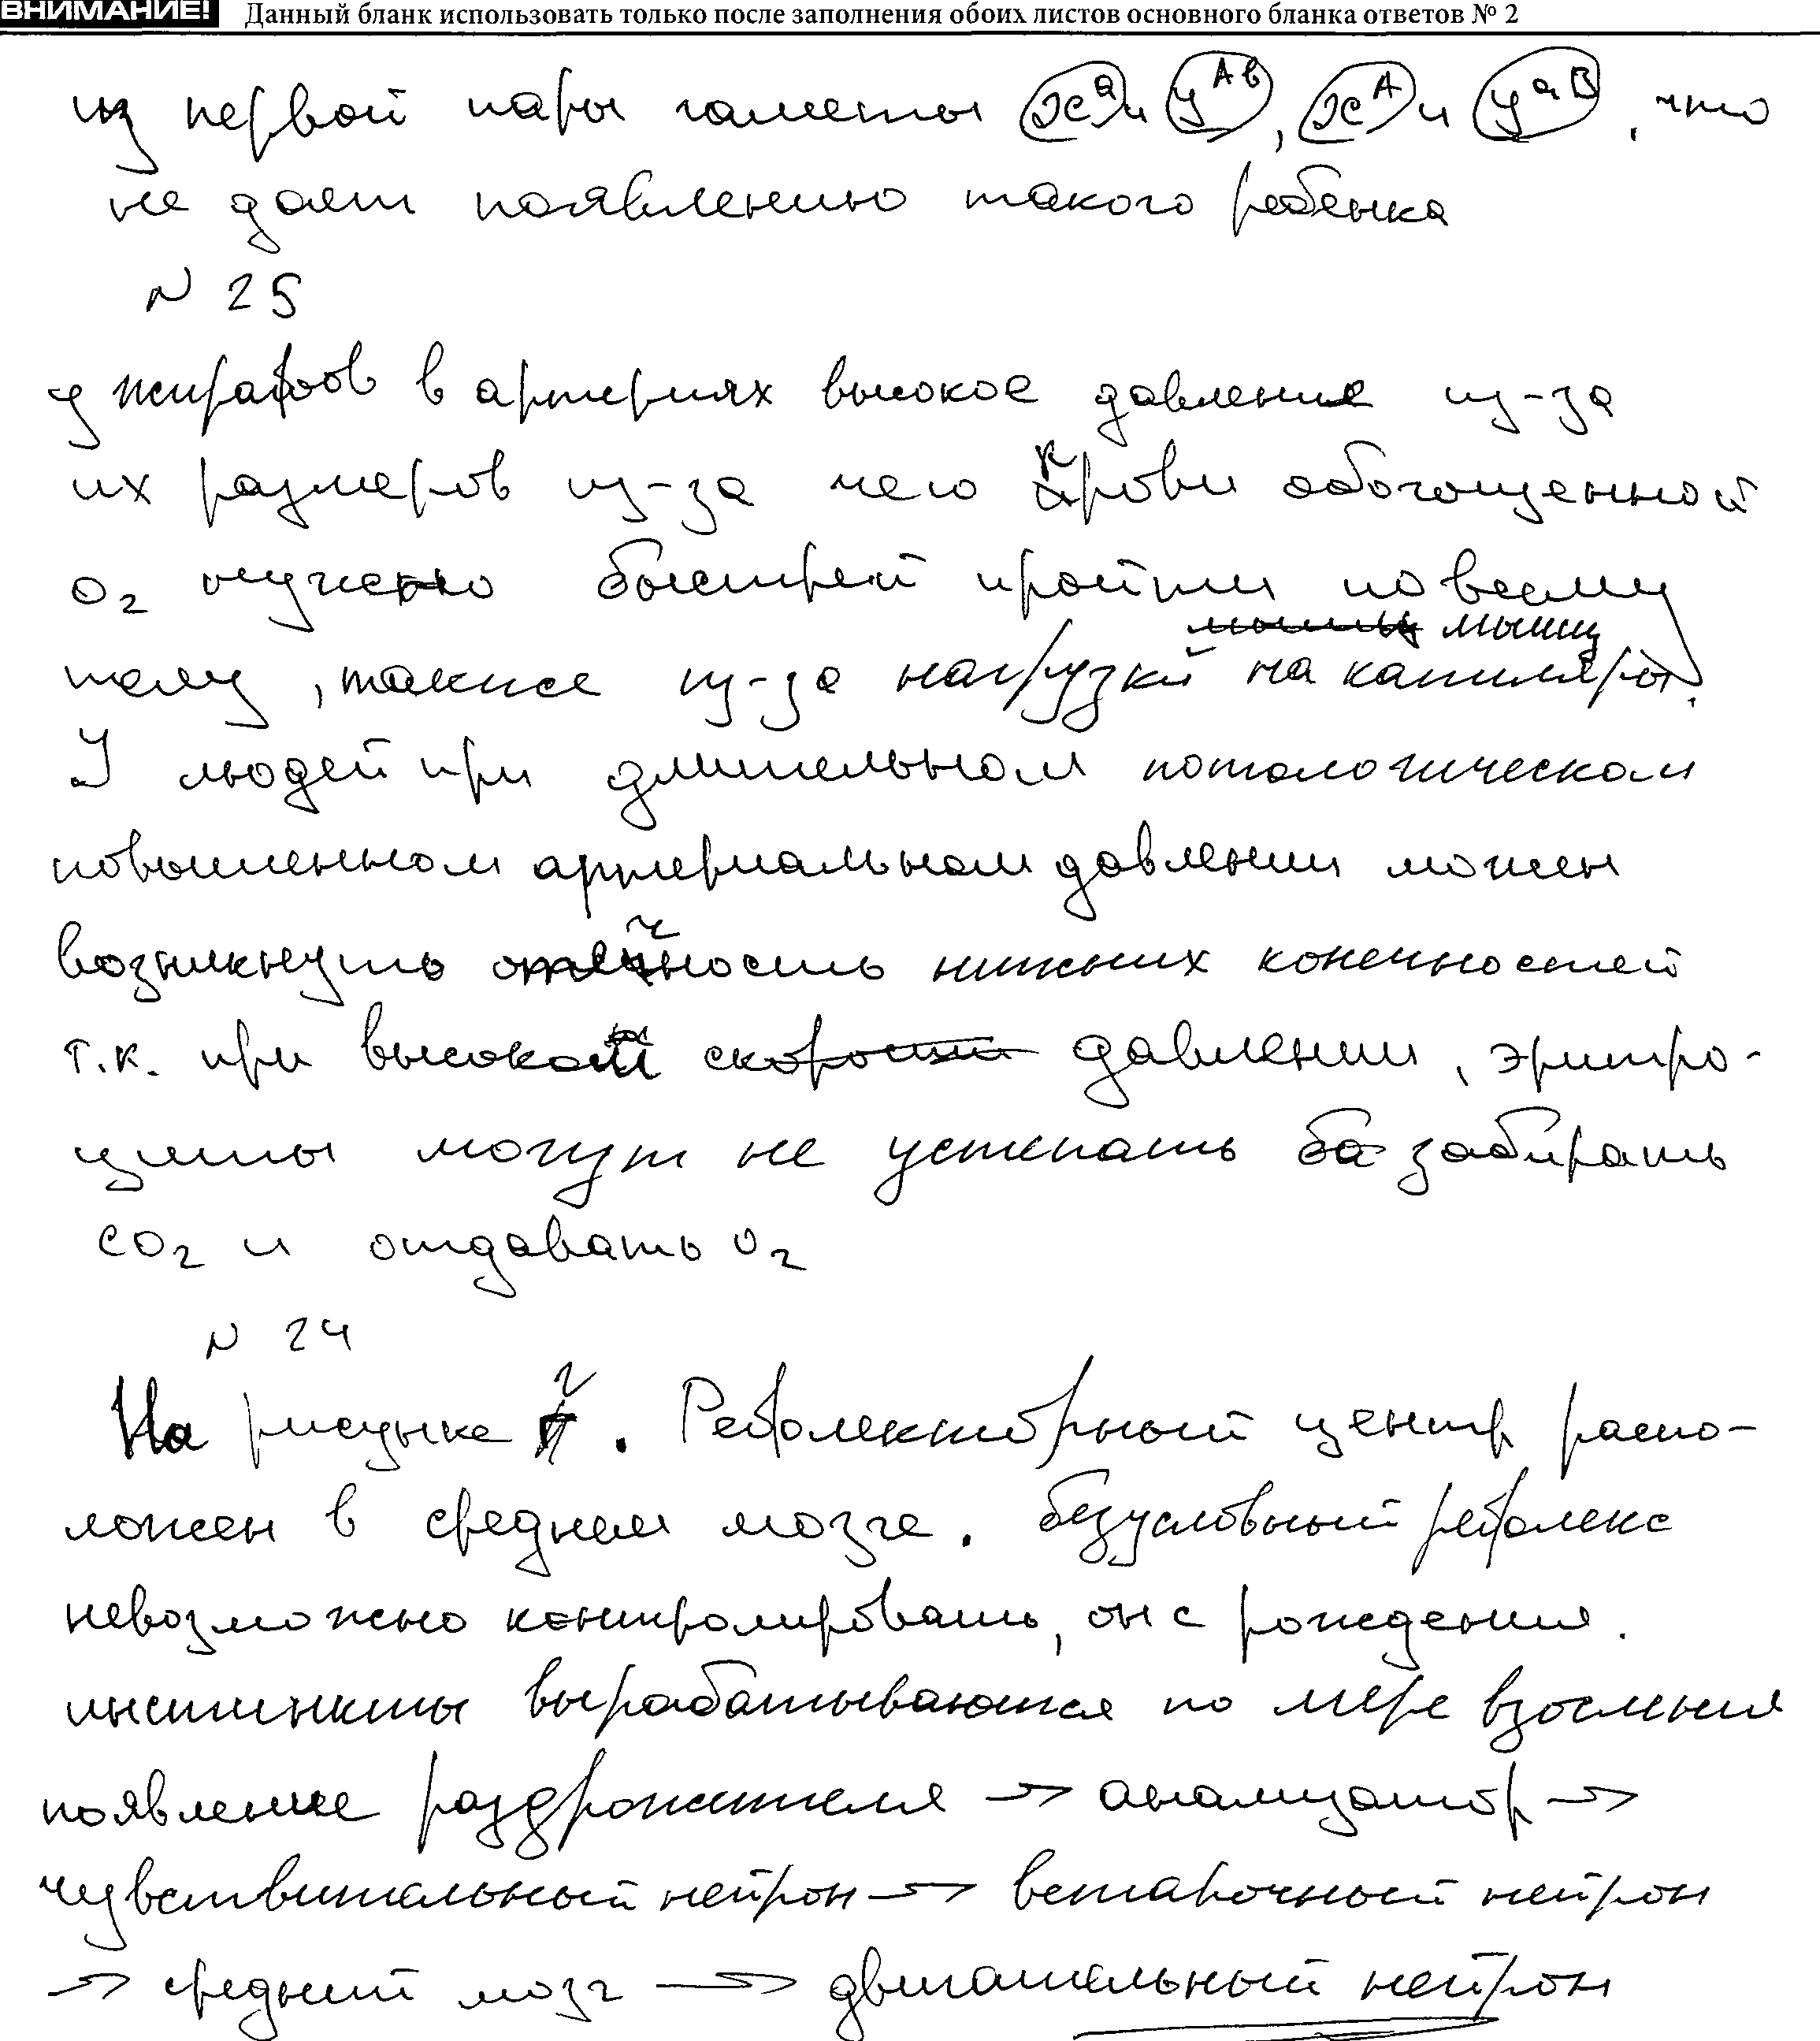 ВНИМАНИЕ! Данный бланк использовать только после заполнения обоих листов основного бланка ответов № 2
из первой пары гаметы xᵃ и yᴬᵇ, xᴬ и yᵃᴮ, что
не даёт появлению такого ребёнка
N 25
у жирафов в артериях высокое давление из-за
их размеров из-за чего крови обогощенной
O₂ нужно быстрей пройти по всему
телу, также из-за нагрузки на мышц капиляры.
У людей при длительном потологическом
повышенном артериальном давлении может
возникнуть отечность нижних конечностей
т.к. при высоком давлении, эритро-
циты могут не успевать забирать
CO₂ и отдавать O₂
N 24
На рисунке 2. Рефлекторный центр распо-
ложен в среднем мозге. безусловный рефлекс
невозможно контролировать, он с рождения.
инстинкты вырабатываются по мере взосления
появление раздрожителя → анализатор →
чувствительный нейрон → вставочный нейрон
→ средний мозг → двигательный нейрон